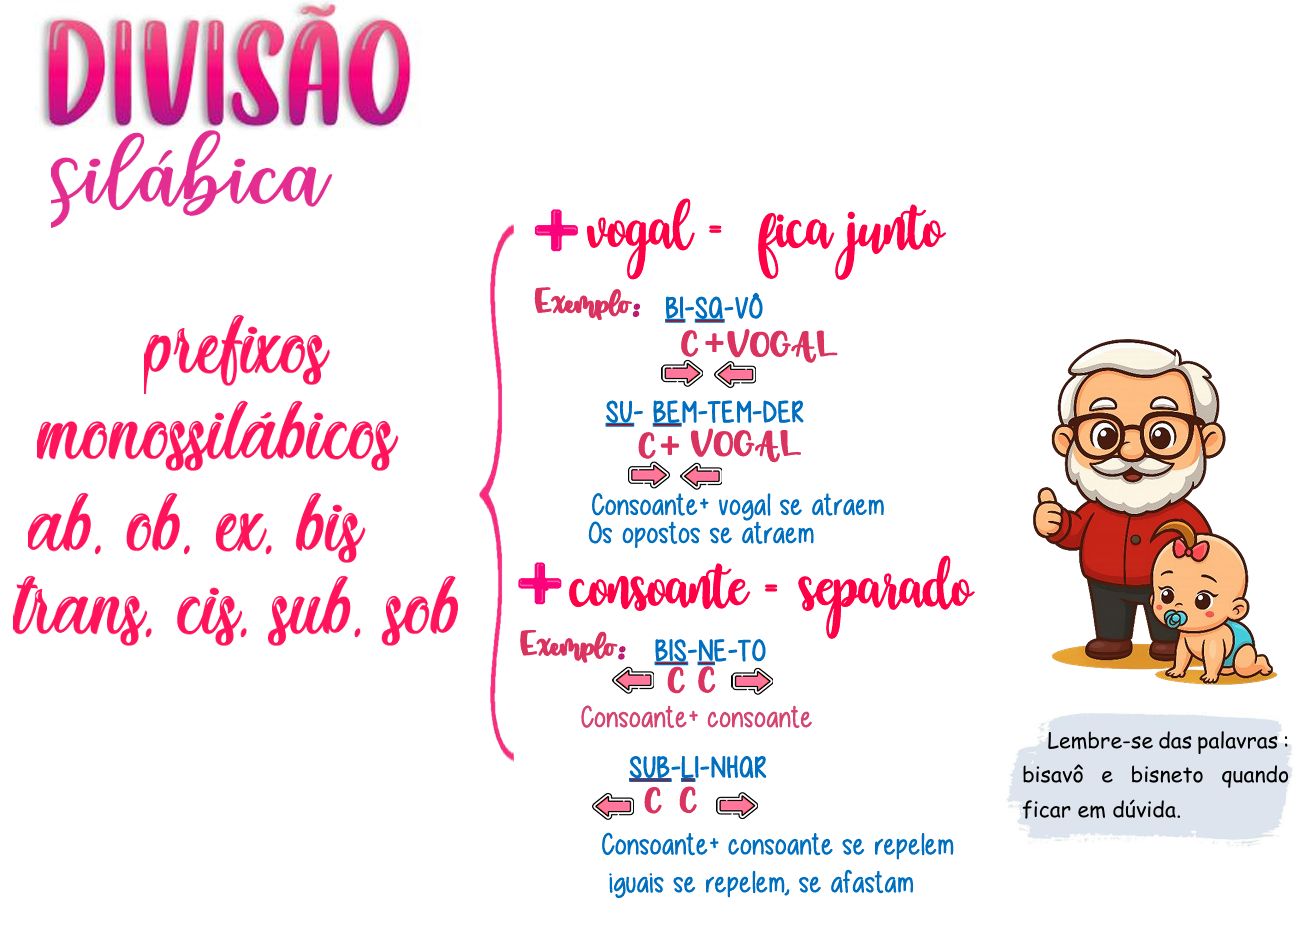 DIVISÃO
silábica
prefixos
monossilábicos
ab, ob, ex, bis
trans, cis, sub, sob
+ vogal = fica junto
Exemplo: BI-SA-VÔ
C + VOGAL
SU- BEM-TEM-DER
C + VOGAL
Consoante+ vogal se atraem
Os opostos se atraem
+ consoante = separado
Exemplo: BIS-NE-TO
C C
Consoante+ consoante
SUB-LI-NHAR
C C
Consoante+ consoante se repelem
iguais se repelem, se afastam
Lembre-se das palavras :
bisavô e bisneto quando
ficar em dúvida.